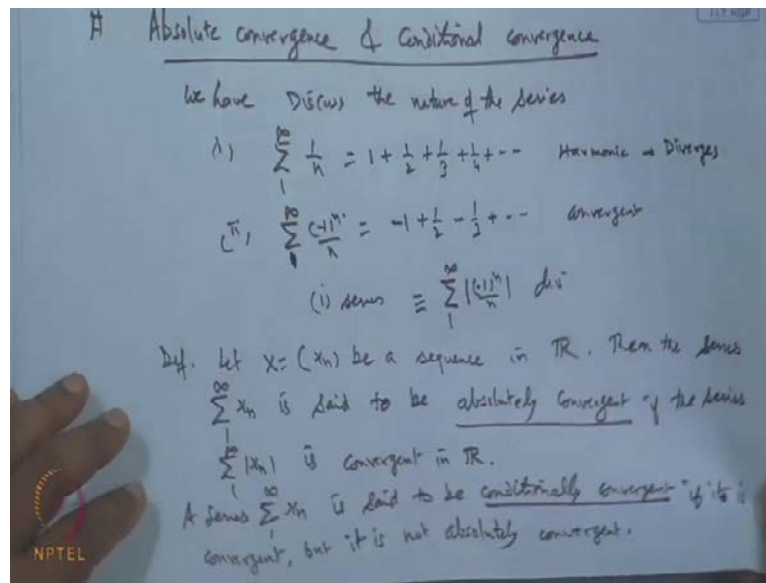 # Absolute convergence & Conditional convergence
We have Discuss the nature of the series
i) ∞ Σ 1 1/n = 1 + 1/2 + 1/3 + 1/4 + -- Harmonic → Diverges
(ii) ∞ Σ 1 (-1)^n/n = -1 + 1/2 - 1/3 + -- convergent
(i) series ≡ ∞ Σ 1 |(-1)^n/n| div
Def. Let X = (xn) be a sequence in R. Then the series
∞ Σ 1 xn is said to be absolutely convergent if the series
∞ Σ 1 |xn| is convergent in R.
A series ∞ Σ 1 xn is said to be conditionally convergent if it is
convergent, but it is not absolutely convergent.
NPTEL